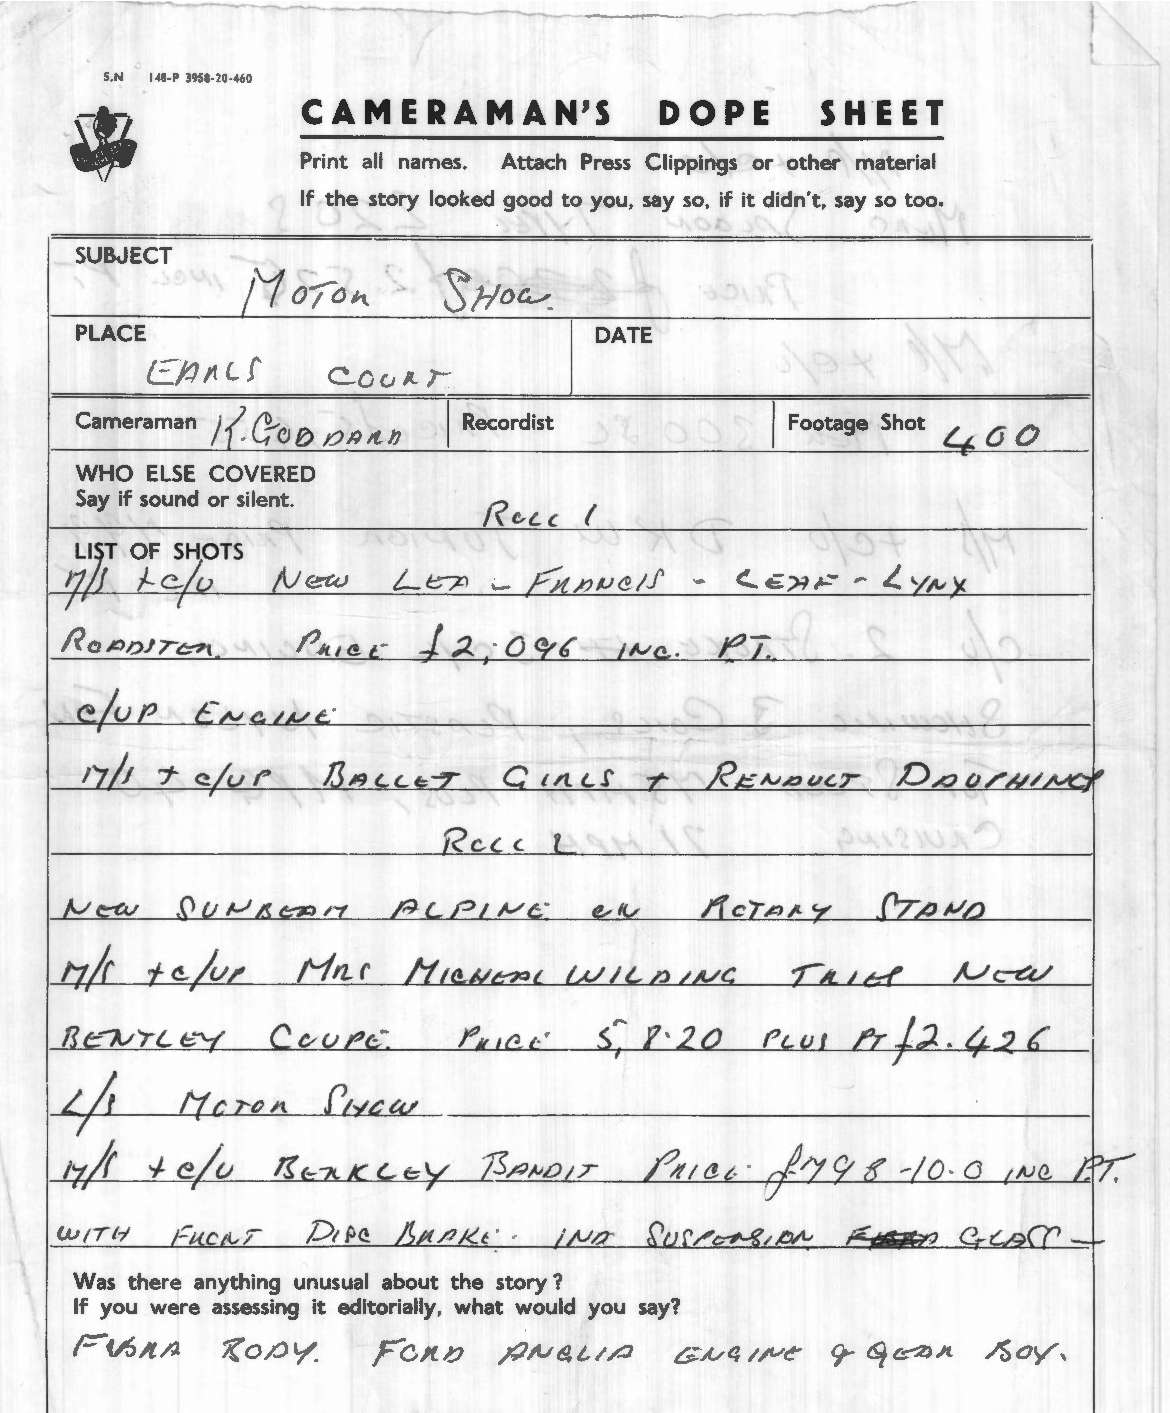 S.N 148-P 3958-20-460
CAMERAMAN'S DOPE SHEET
Print all names. Attach Press Clippings or other material
If the story looked good to you, say so, if it didn't, say so too.
SUBJECT
MOTOR SHOW.
PLACE
EARLS COURT
DATE
Cameraman K. GODDARD
Recordist
Footage Shot 400
WHO ELSE COVERED
Say if sound or silent.
ROLL 1
LIST OF SHOTS
M/S + C/U NEW LEA - FRANCIS - LEAF - LYNX
ROADSTER. PRICE £2,096 INC. P.T.
C/UP ENGINE
M/S + C/UP BALLET GIRLS + RENAULT DAUPHINES
ROLL 2
NEW SUNBEAM ALPINE ON ROTARY STAND
M/S + C/UP MRS MICHEAL WILDING TRIES NEW
BENTLEY COUPE. PRICE 5,8.20 PLUS PT £2.426
L/S MOTOR SHOW
M/S + C/U BERKLEY BANDIT PRICE £798-10.0 INC P.T.
WITH FRONT DISC BRAKE. IND SUSPENSION GLASS -
Was there anything unusual about the story?
If you were assessing it editorially, what would you say?
FIBRA BODY. FORD ANGLIA ENGINE & GEAR BOX.